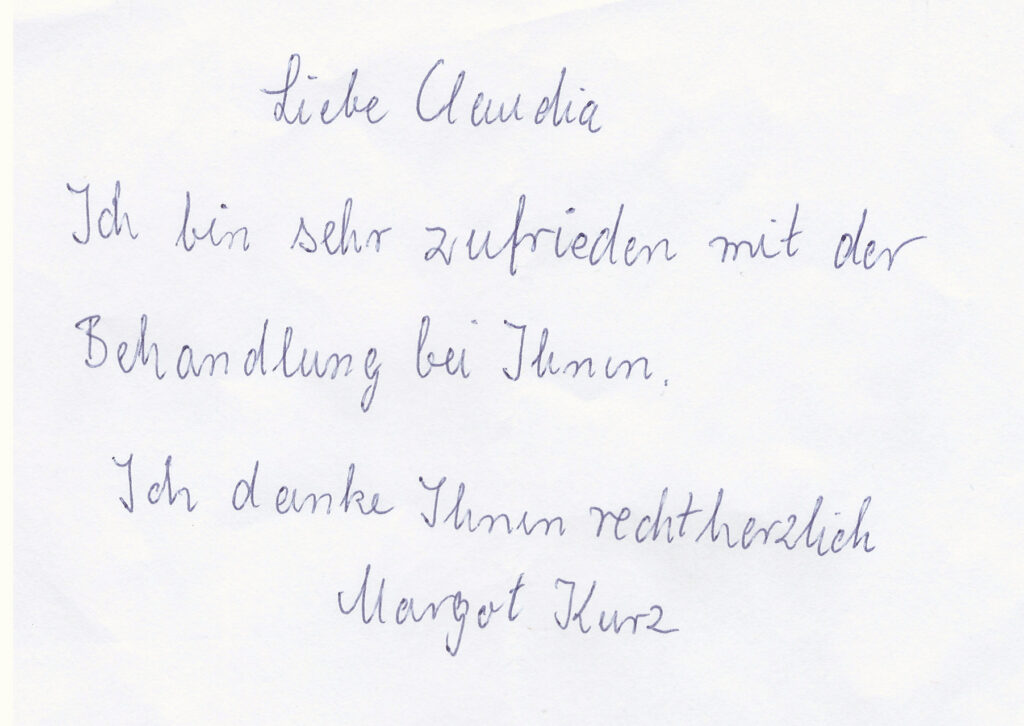 Liebe Claudia
Ich bin sehr zufrieden mit der
Behandlung bei Ihnen.
Ich danke Ihnen recht herzlich
Margot Kurz